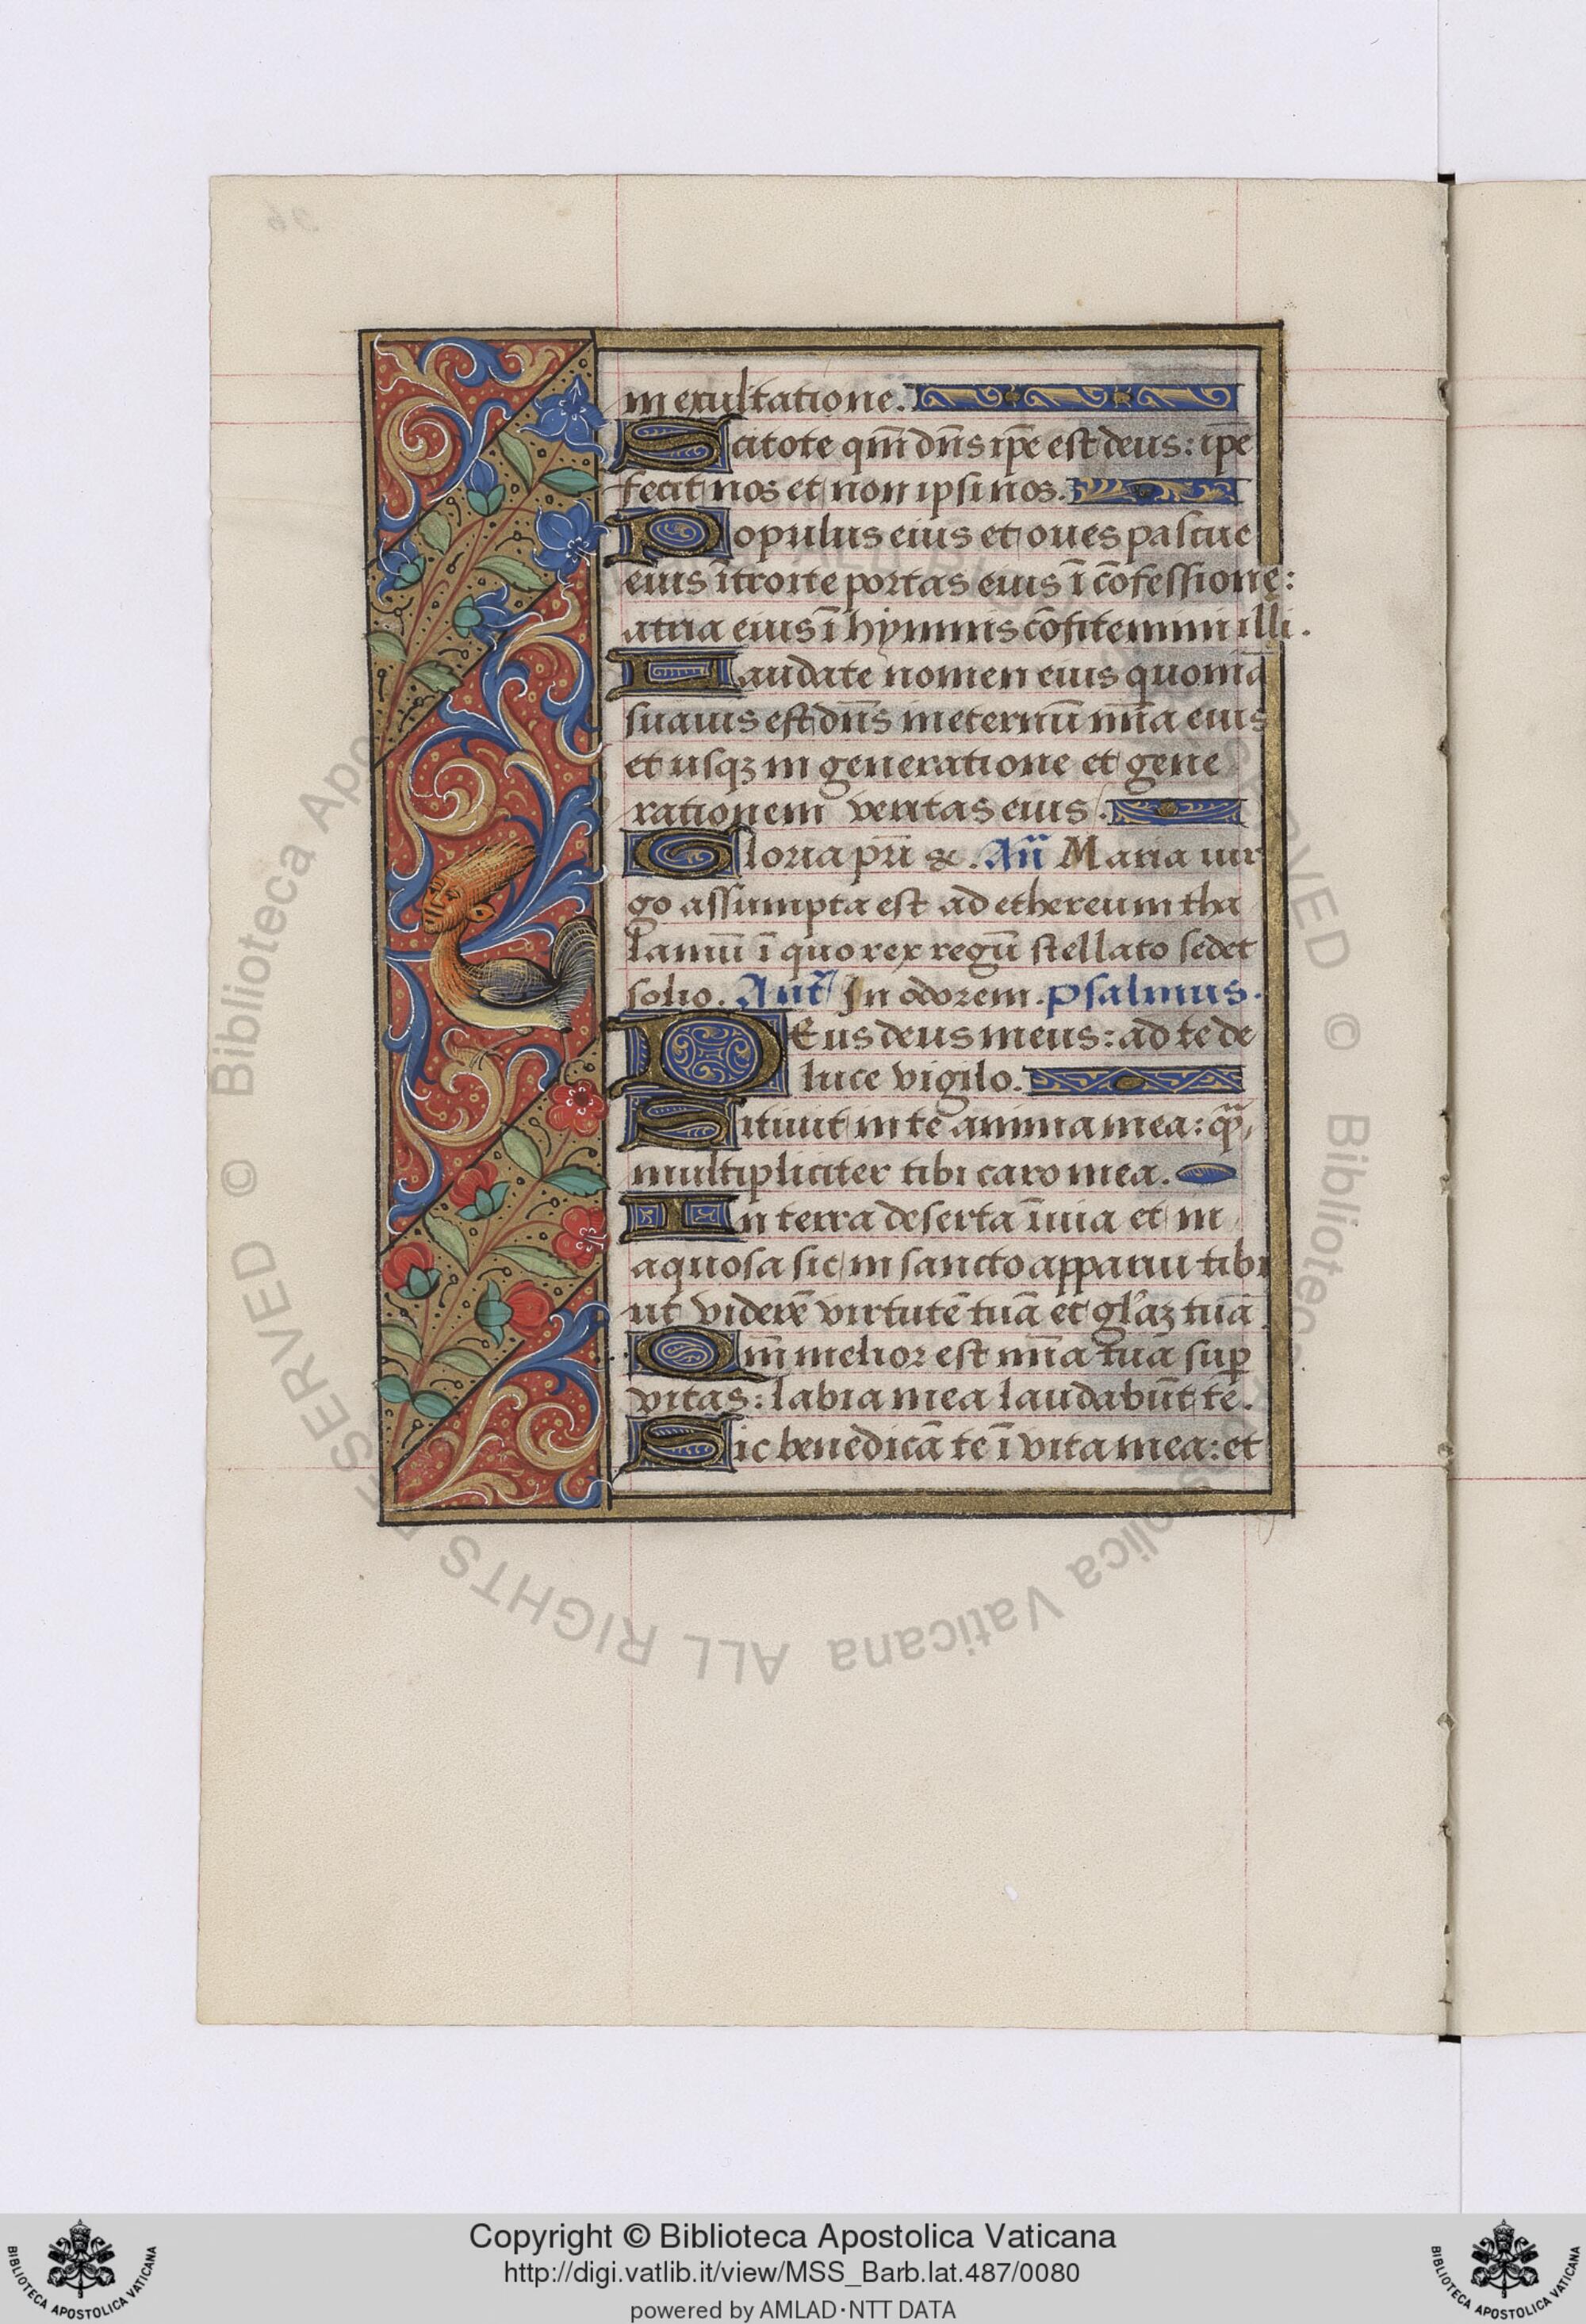 in exultatione.
Scitote qm̄ dn̄s ip̄e est deus: ip̄e
fecit nos et non ipsi nos.
Populus eius et oues pascue
eius ītroite portas eius ī cōfessione:
atria eius ī hymnis cōfitemini illi.
Laudate nomen eius quoniā
suauis est dn̄s in eternū mīa eius
et usqꝫ in generatione et gene
rationem veritas eius.
Gloria pr̄i &c. An̄ Maria uir
go assumpta est ad ethereum tha
lamū ī quo rex regū stellato sedet
solio. Ant̄ In odorem. psalmus.
DEus deus meus: ad te de
luce vigilo.
Sitiuit in te anima mea: qͣ̄
multipliciter tibi caro mea.
In terra deserta īuia et in
aquosa sic in sancto apparui tibi
ut viderē virtutē tuā et gl'aꝫ tuā.
Qm̄ melior est mīa tua sup̄
vitas: labia mea laudabūt te.
Sic benedicā te ī vita mea: et
© Biblioteca Apostolica Vaticana ALL RIGHTS RESERVED
Copyright © Biblioteca Apostolica Vaticana
http://digi.vatlib.it/view/MSS_Barb.lat.487/0080
powered by AMLAD·NTT DATA
BIBLIOTECA APOSTOLICA VATICANA
BIBLIOTECA APOSTOLICA VATICANA